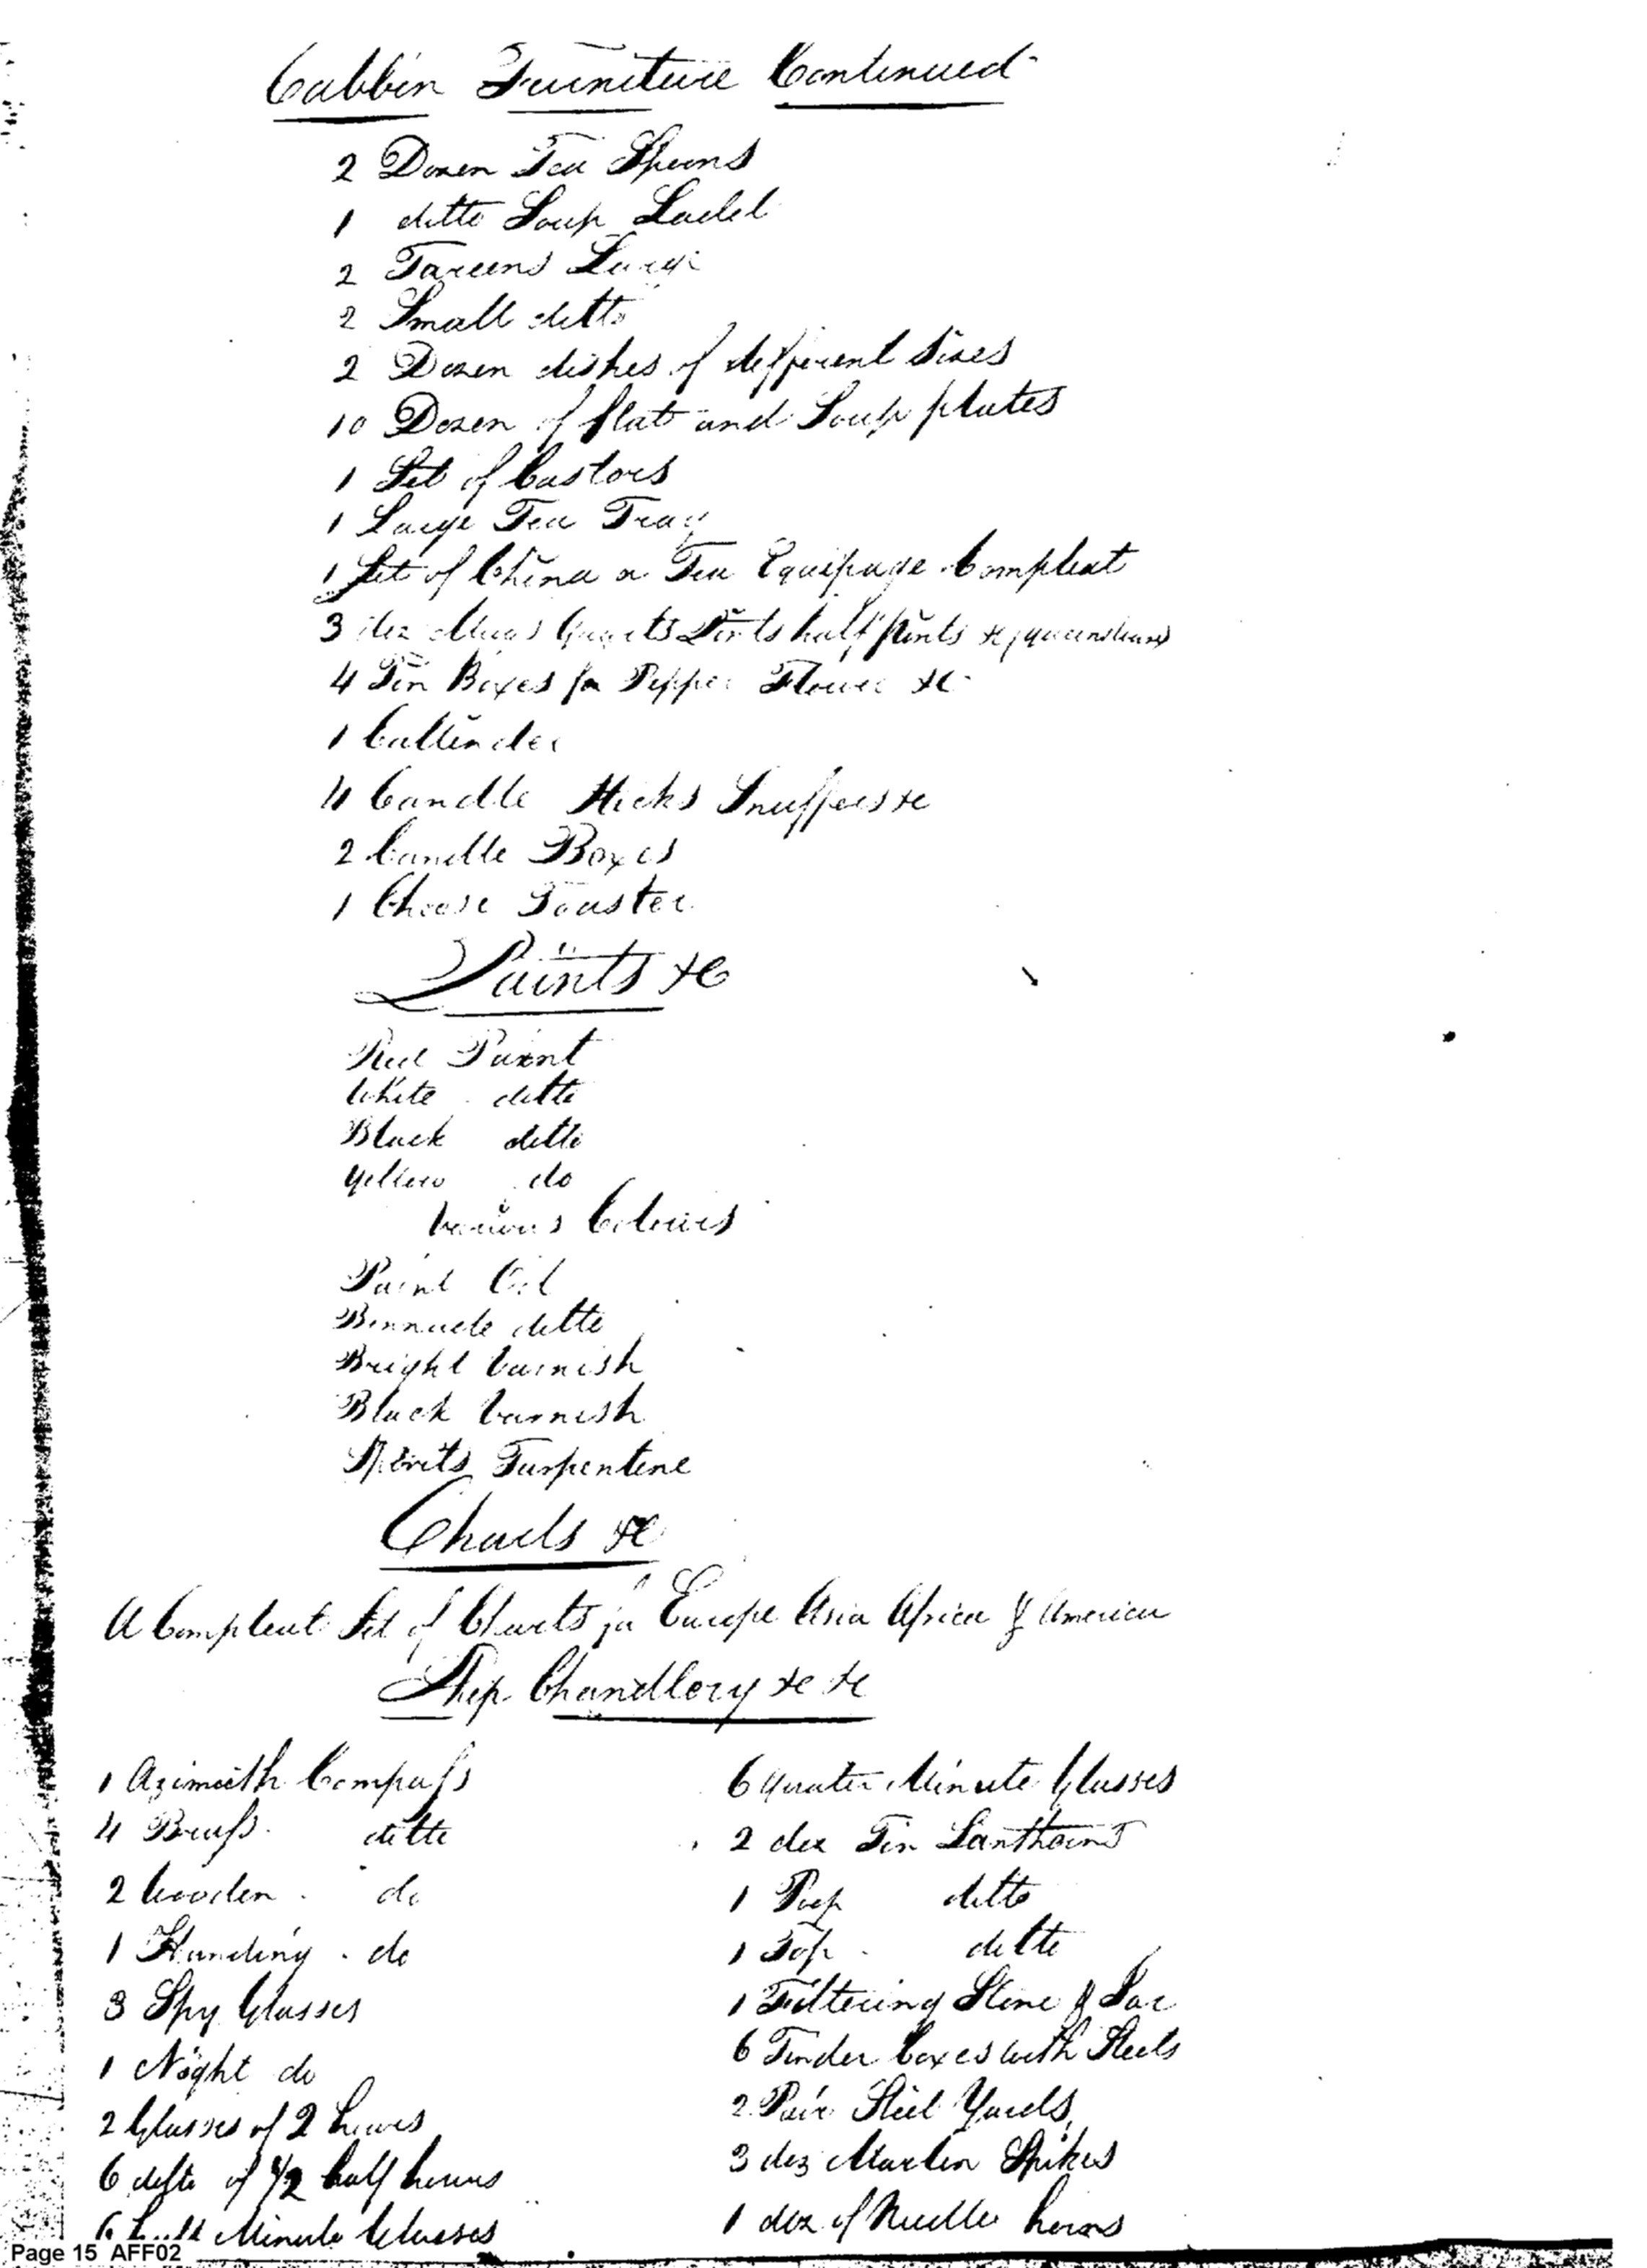 Cabbin Furniture Continued
2 Dozen Tea Spoons
1 ditto Soup Ladel
2 Tareens Large
2 Small ditto
2 Dozen dishes of different Sizes
10 Dozen of flat and Soup plates
1 Set of Castors
1 Large Tea Tray
1 Set of China or Tea Equipage Compleat
3 doz Mugs Quarts Pints half pints &c (queensware)
4 Tin Boxes for Pepper Flower &c
1 Cullender
4 Candle Sticks Snuffers &c
2 Candle Boxes
1 Cheese Toaster
Paints &c
Red Paint
White ditto
Black ditto
Yellow do
Various Colours
Paint Oil
Binnacle ditto
Bright Varnish
Black Varnish
Spirits Turpentine
Charts &c
A Compleat Set of Charts for Europe Asia Africa & America
Ship Chandlery &c &c
1 Azimuth Compass
4 Brass ditto
2 Wooden do
1 Standing do
3 Spy Glasses
1 Night do
2 Glasses of 2 hours
6 ditto of 1/2 half hours
6 half Minute Glasses
6 Quater Minute Glasses
2 doz Tin Lanthorns
1 Poop ditto
1 Top ditto
1 Filtering Stone & Jar
6 Tinder boxes with Steels
2 Pair Steel Yards
3 doz Marlin Spikes
1 doz of Needle horns
Page 15 AFF02